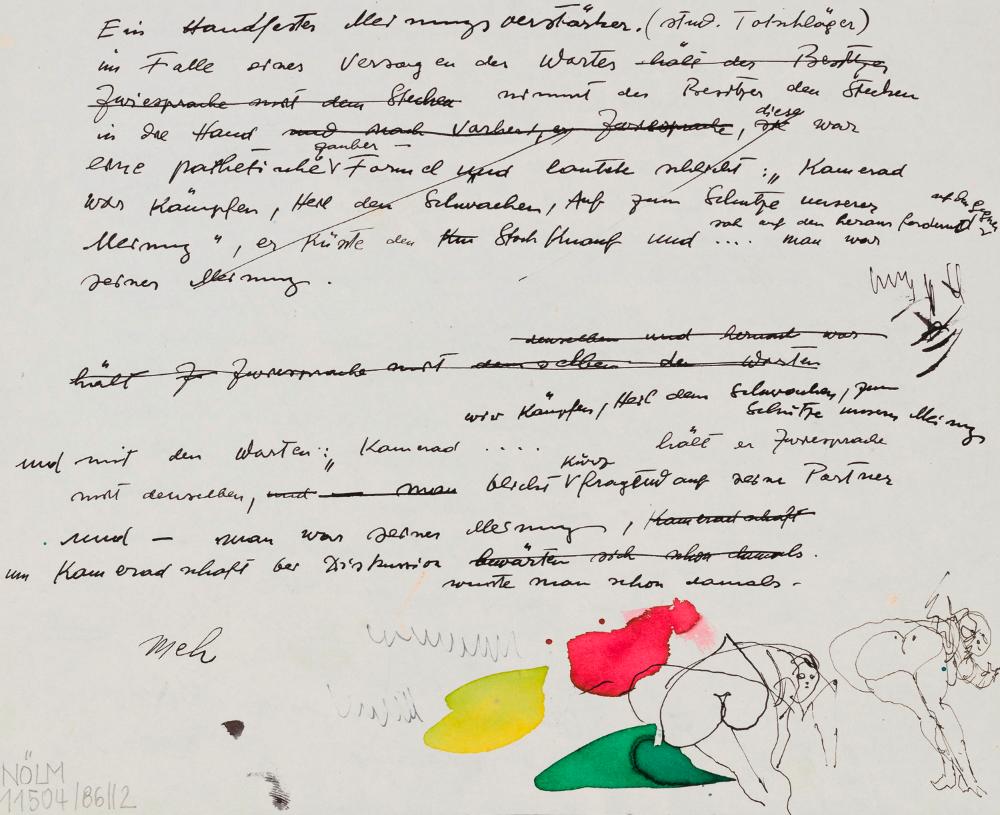 Ein Handfester Meinungsverstärker. (stud. Totschläger)
im Falle eines Versagen der Worte hält der Besitzer
Zwiesprache mit dem Stecken nimmt der Besitzer den Stecken
diese
in die Hand und nach Zwiesprache, war
zauber –
eine pathetische Formel und lautete schlicht: „Kamerad
wir Kämpfen, Heil den Schwachen, Auf zum Schutze unserer
sah auf den herausfordernd
Meinung", er küsste den Stockknauf und .... man war
seiner Meinung.
denselben und hernach war
hält Zwiesprache mit denselben den Worten
wir Kämpfen, Heil dem Schwachen, zum
Schutze unserer Meinung
und mit den Worten: „Kamerad .... hält er Zwiesprache
kurz
mit denselben, und — man blickt fragend auf seine Partner
und – man war seiner Meinung, Kameradschaft
um Kameradschaft bei Diskussion bewärten sich schon damals.
wusste man schon damals –
NÖLM
11504/86/12